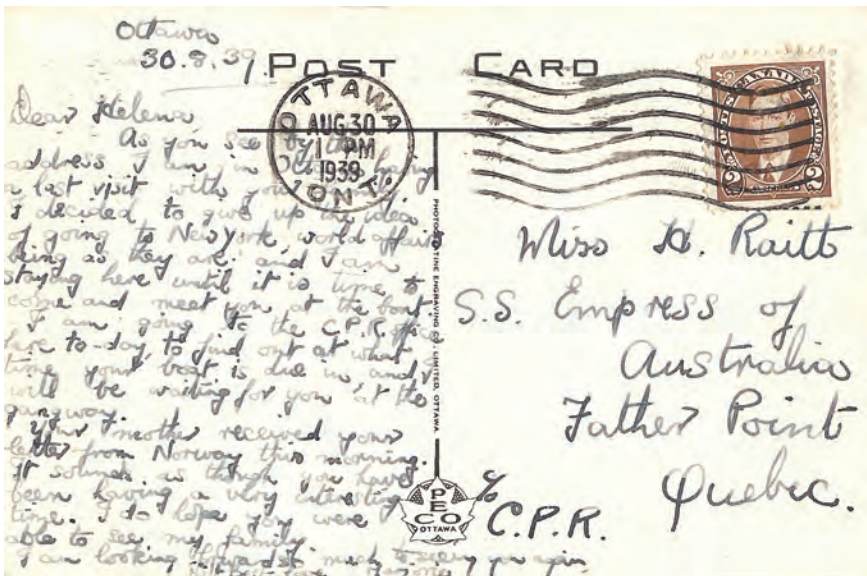 Ottawa
30.8.39.
POST CARD
OTTAWA
AUG 30
1 PM
1939
ONT.
CANADA
POSTES POSTAGE
2 2
Dear Helena
As you see by the
address I am in Ottawa having
a last visit with your
I decided to give up the idea
of going to New York world affairs
being as they are. and I am
staying here until it is time to
come and meet you at the boat.
I am going to the C.P.R. office
here to-day to find out at what
time your boat is due in and I
will be waiting for you at the
gangway.
Your mother received your
letter from Norway this morning.
It sounds as though you have
been having a very interesting
time. I do hope you were
able to see my family.
I am looking forward so much to seeing you again
With best love Marjorie
PHOTOGELATINE ENGRAVING CO. LIMITED, OTTAWA
PECO
OTTAWA
Miss H. Raitt
S.S. Empress of
Australia
Father Point
Quebec.
c/o C.P.R.